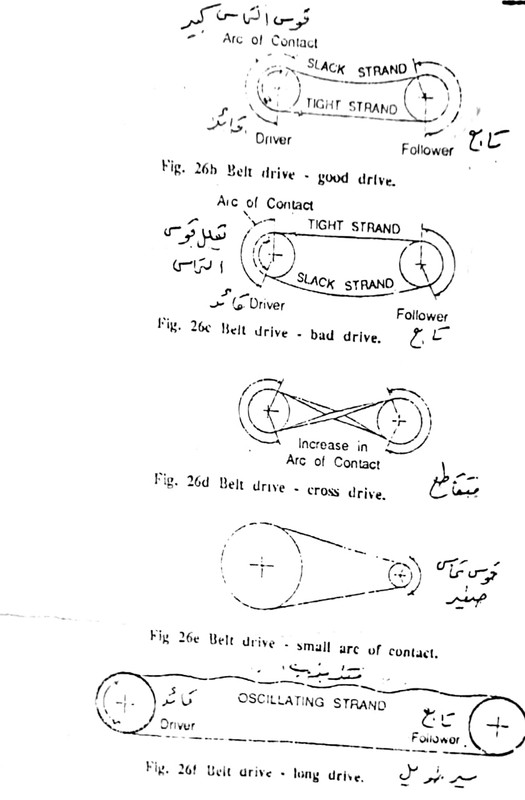 قوس التماس كبير
Arc of Contact
SLACK STRAND
TIGHT STRAND
قائد
Driver
Follower
تابع
Fig. 26b Belt drive - good drive.
Arc of Contact
TIGHT STRAND
قوس
التماس
SLACK STRAND
قائد Driver
Follower
تابع
Fig. 26c Belt drive - bad drive.
Increase in
Arc of Contact
Fig. 26d Belt drive - cross drive.
متقاطع
قوس تماس
صغير
Fig 26e Belt drive - small arc of contact.
OSCILLATING STRAND
قائد
Driver
تابع
Follower
Fig. 26f Belt drive - long drive.
سير طويل